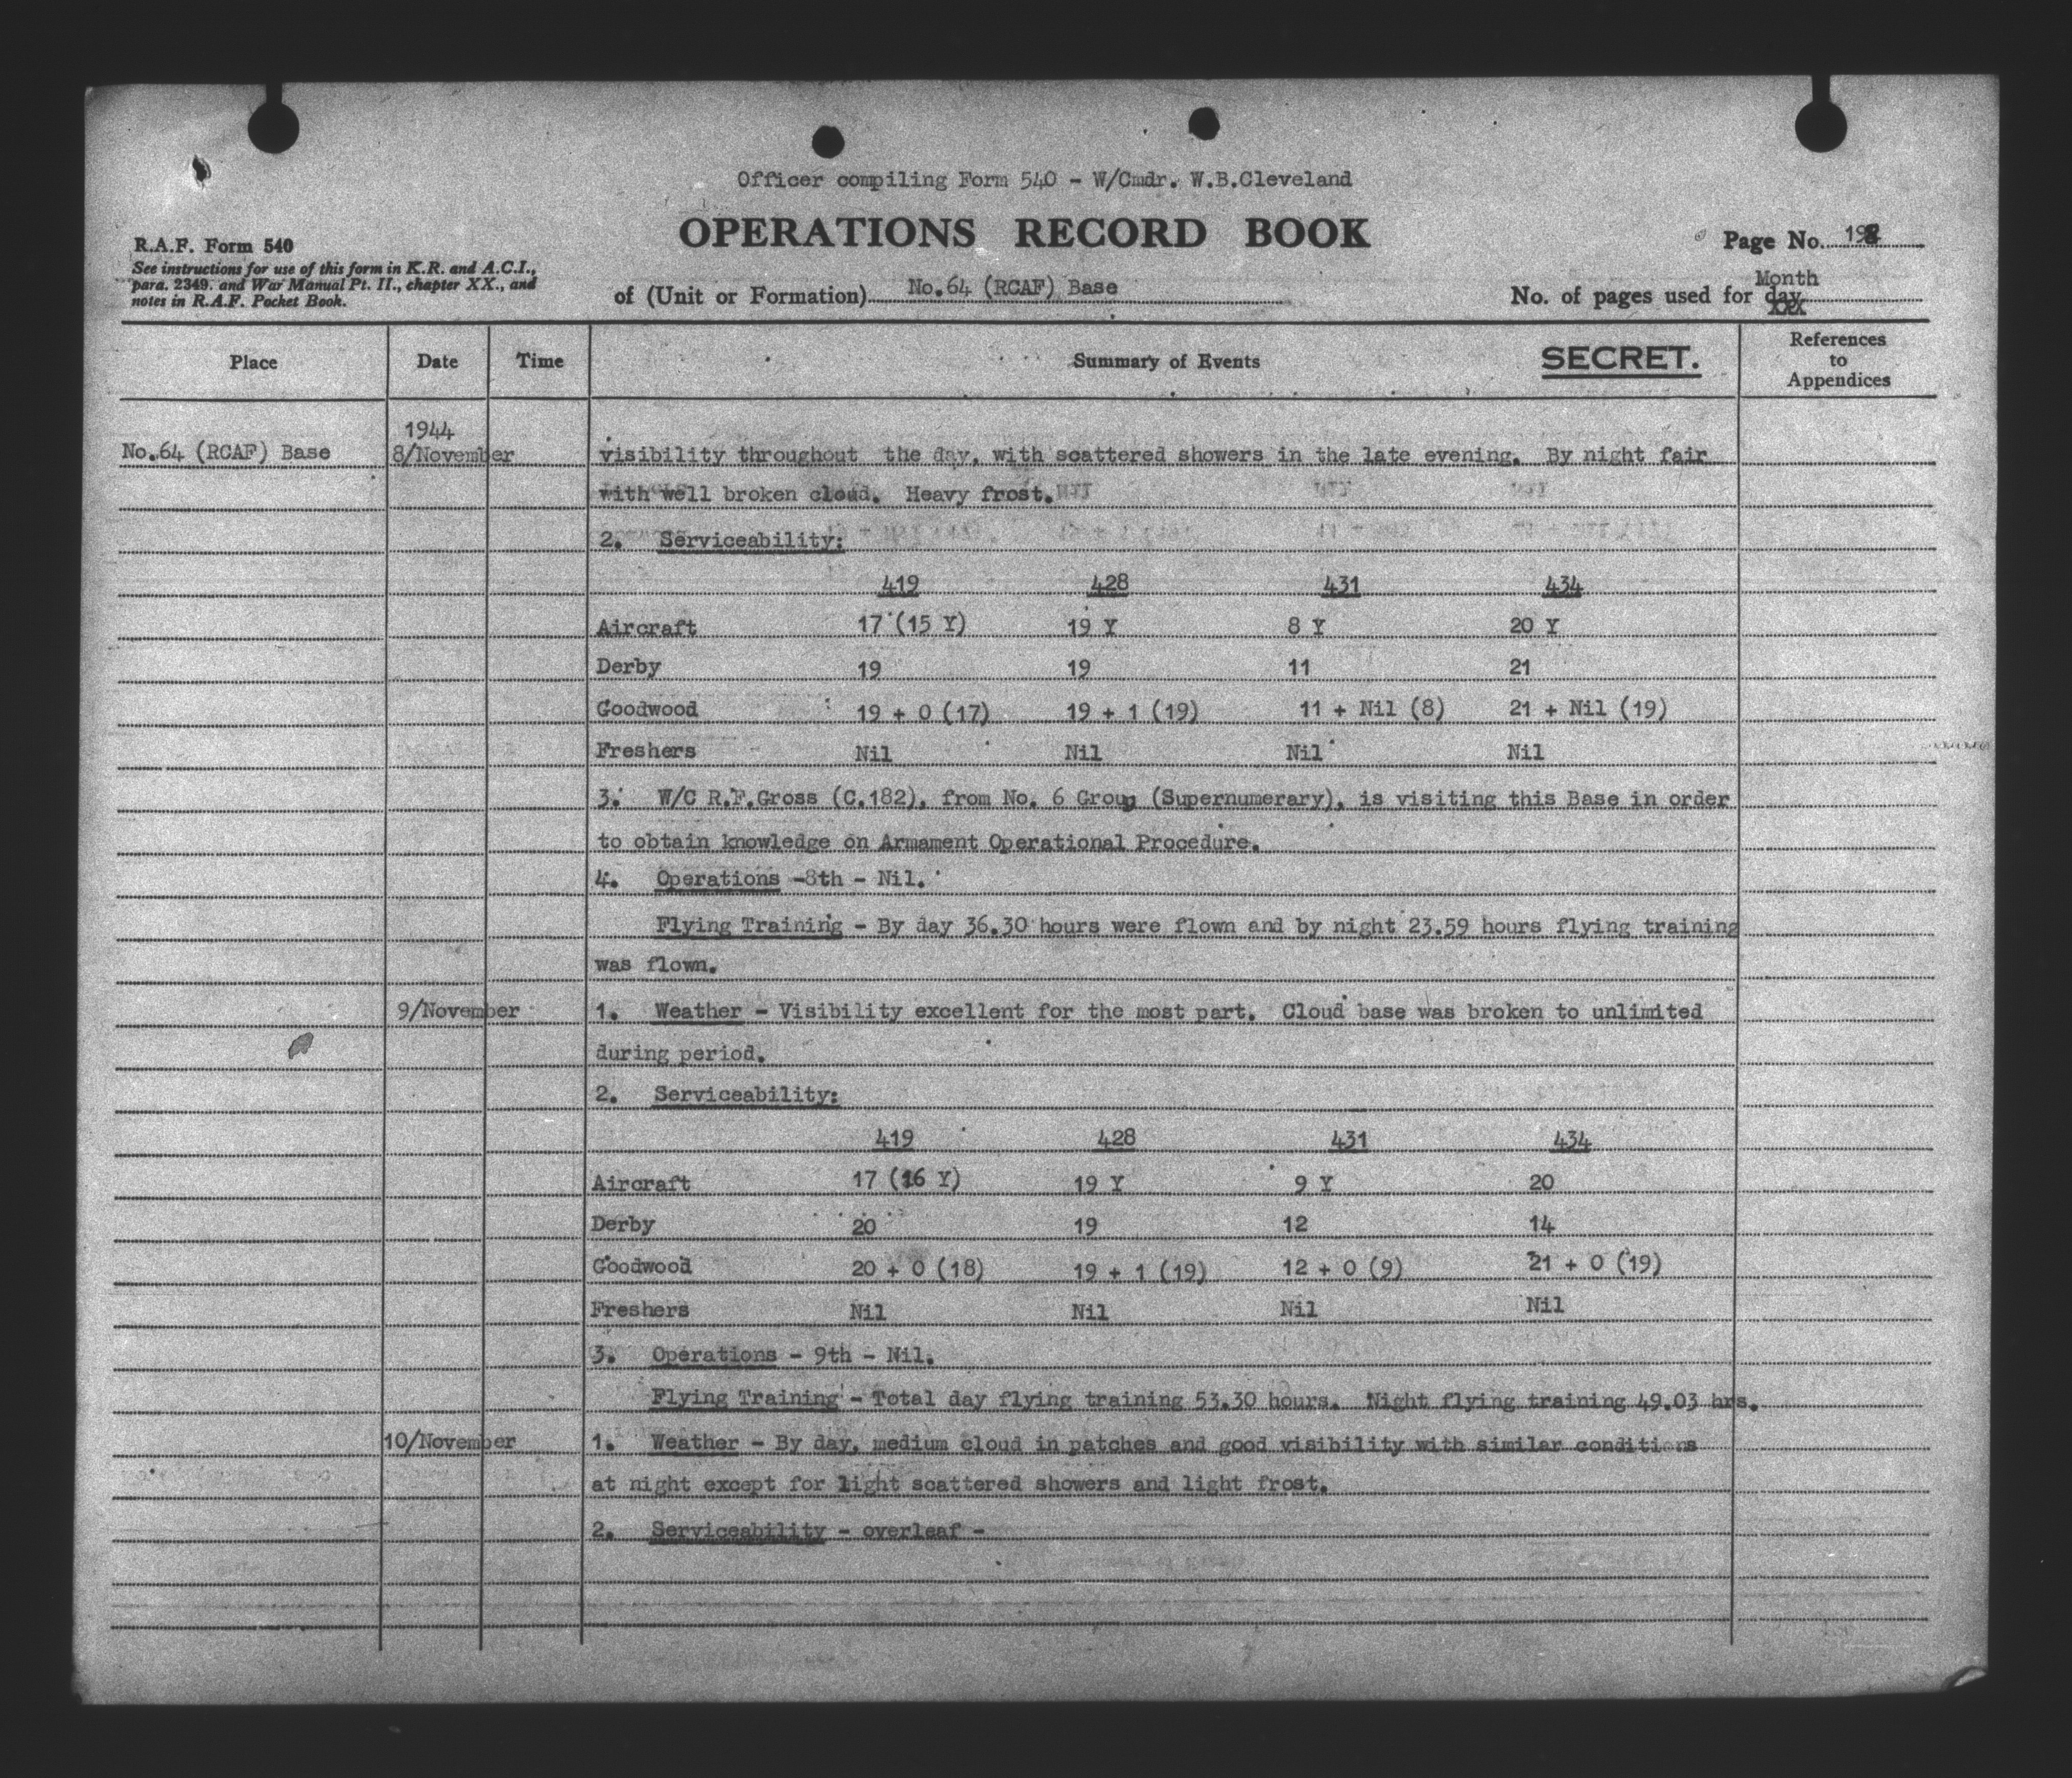 Officer compiling Form 540 - W/Cmdr. W.B.Cleveland
OPERATIONS RECORD BOOK
R.A.F. Form 540
See instructions for use of this form in K.R. and A.C.I.,
para. 2349. and War Manual Pt. II., chapter XX., and
notes in R.A.F. Pocket Book.
Page No. 198
of (Unit or Formation) No.64 (RCAF) Base
Month
No. of pages used for day
XXX
Place Date Time Summary of Events SECRET. References to Appendices
1944
No.64 (RCAF) Base 8/November visibility throughout the day, with scattered showers in the late evening. By night fair
with well broken cloud. Heavy frost.
2. Serviceability:
419 428 431 434
Aircraft 17 (15 Y) 19 Y 8 Y 20 Y
Derby 19 19 11 21
Goodwood 19 + 0 (17) 19 + 1 (19) 11 + Nil (8) 21 + Nil (19)
Freshers Nil Nil Nil Nil
3. W/C R.F.Gross (C.182), from No. 6 Group (Supernumerary), is visiting this Base in order
to obtain knowledge on Armament Operational Procedure.
4. Operations -8th - Nil.
Flying Training - By day 36.30 hours were flown and by night 23.59 hours flying training
was flown.
9/November 1. Weather - Visibility excellent for the most part. Cloud base was broken to unlimited
during period.
2. Serviceability:
419 428 431 434
Aircraft 17 (16 Y) 19 Y 9 Y 20
Derby 20 19 12 14
Goodwood 20 + 0 (18) 19 + 1 (19) 12 + 0 (9) 21 + 0 (19)
Freshers Nil Nil Nil Nil
3. Operations - 9th - Nil.
Flying Training - Total day flying training 53.30 hours. Night flying training 49.03 hrs.
10/November 1. Weather - By day, medium cloud in patches and good visibility with similar conditions
at night except for light scattered showers and light frost.
2. Serviceability - overleaf -